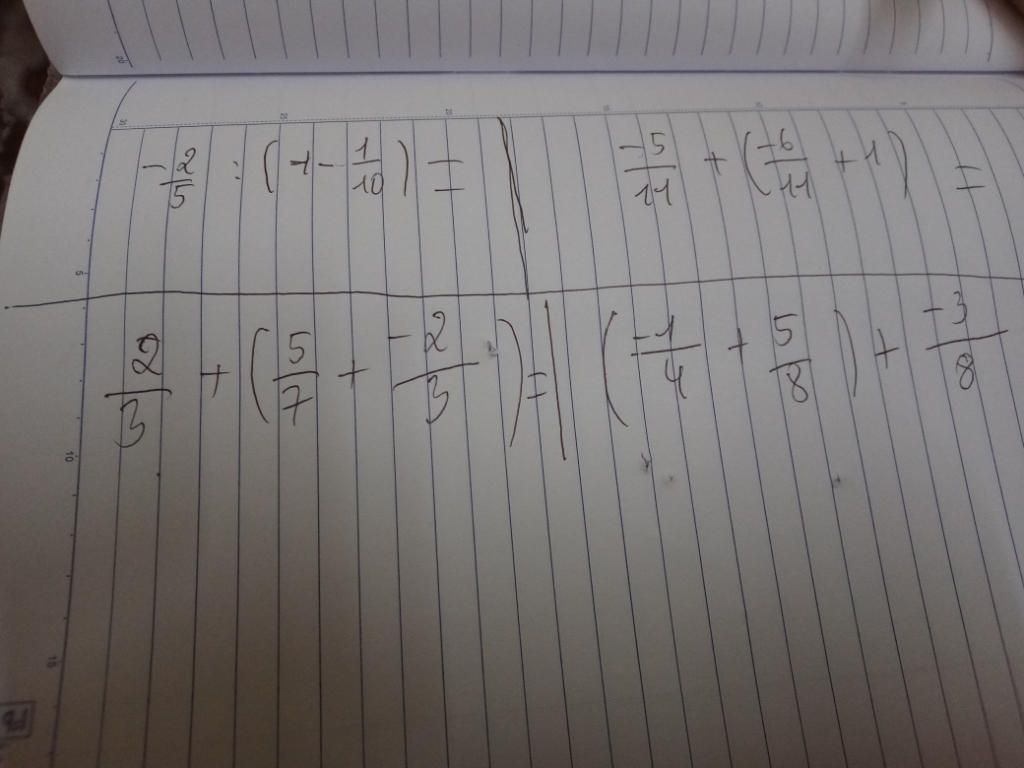 -2/5 : (-1 - 1/10) =
-5/11 + (-6/11 + 1) =
2/3 + (5/7 + -2/3) =
(-1/4 + 5/8) + -3/8